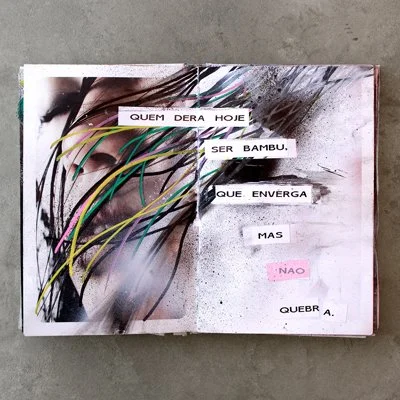 QUEM DERA HOJE
SER BAMBU,
QUE ENVERGA
MAS
NAO
QUEBRA.